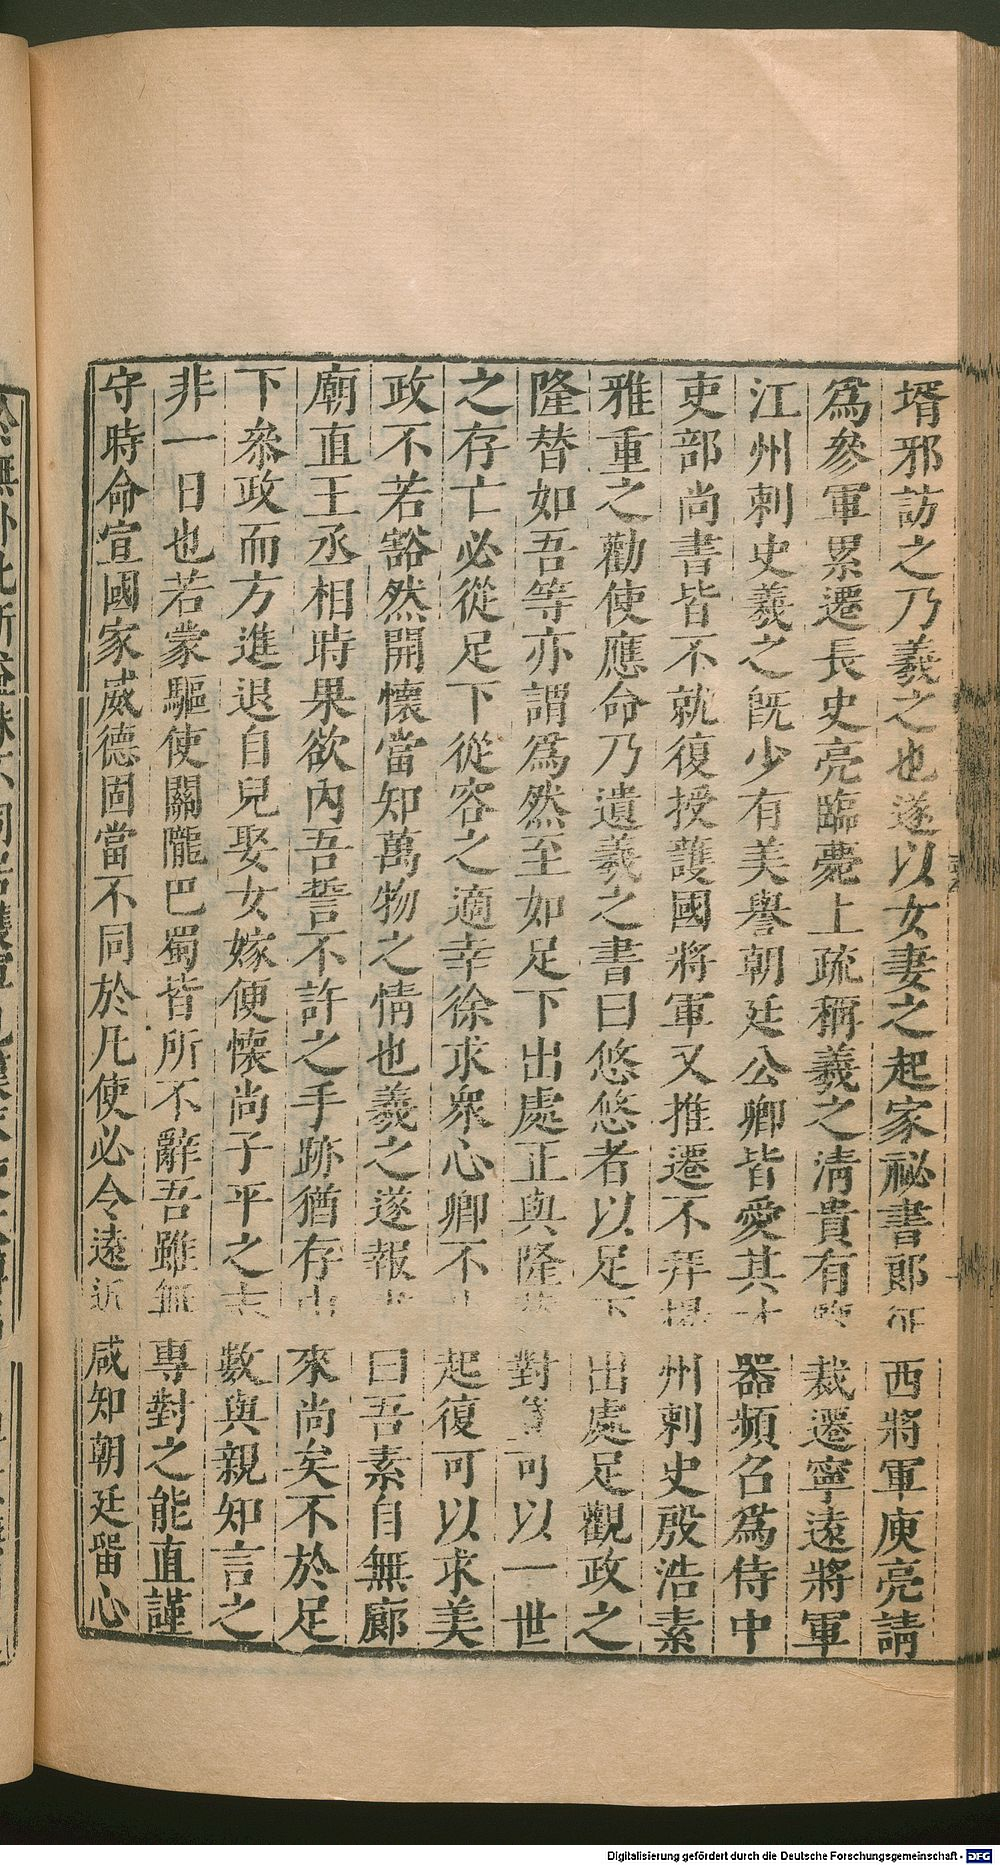 壻邪訪之乃羲之也遂以女妻之起家祕書郎征西將軍庾亮請
爲參軍累遷長史亮臨薨上疏稱羲之淸貴有鑒裁遷寧遠將軍
江州刺史羲之既少有美譽朝廷公卿皆愛其才器頻召爲侍中
吏部尚書皆不就復授護國將軍又推遷不拜揚州刺史殷浩素
雅重之勸使應命乃遺羲之書曰悠悠者以足下出處足觀政之
隆替如吾等亦謂爲然至如足下出處正與隆替對豈可以一世
之存亡必從足下從容之適幸徐求衆心卿不時起復可以求美
政不若豁然開懷當知萬物之情也羲之遂報書曰吾素自無廊
廟直王丞相時果欲內吾誓不許之手跡猶存由來尚矣不於足
下參政而方進退自兒娶女嫁便懷尚子平之志數與親知言之
非一日也若蒙驅使關隴巴蜀皆所不辭吾雖無專對之能直謹
守時命宣國家威德固當不同於凡使必令遠近咸知朝廷留心
Digitalisierung gefördert durch die Deutsche Forschungsgemeinschaft - DFG